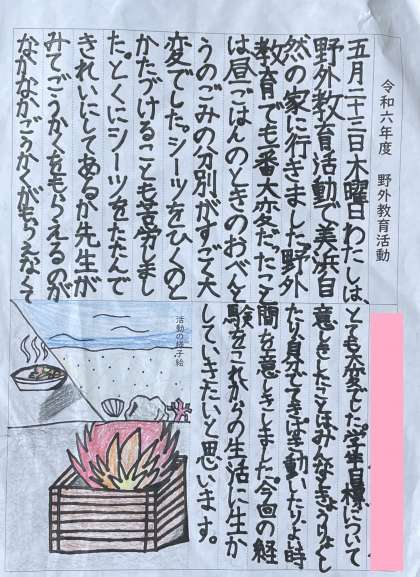 令和六年度　野外教育活動
五月二十三日木曜日わたしは、
野外教育活動で美浜自
然の家に行きました。野外
教育でも番大変だったこと
は昼ごはんのときのおべんと
うのごみの分別がすごく大
変でした。シーツをひくのと
かたづけることも苦労しまし
た。とくにシーツをたたんで
きれいにしてあるか先生が
みてごうかくをもらえるのが
なかなかごうかくがもらえなくて
とても大変でした。学年目標について
意しきしたことはみんなときょう力し
たり自分でてきぱき動いたりよ時
間を意しきしました。今回の経
験をこれからの生活に生か
していきたいと思います。
活動の様子絵